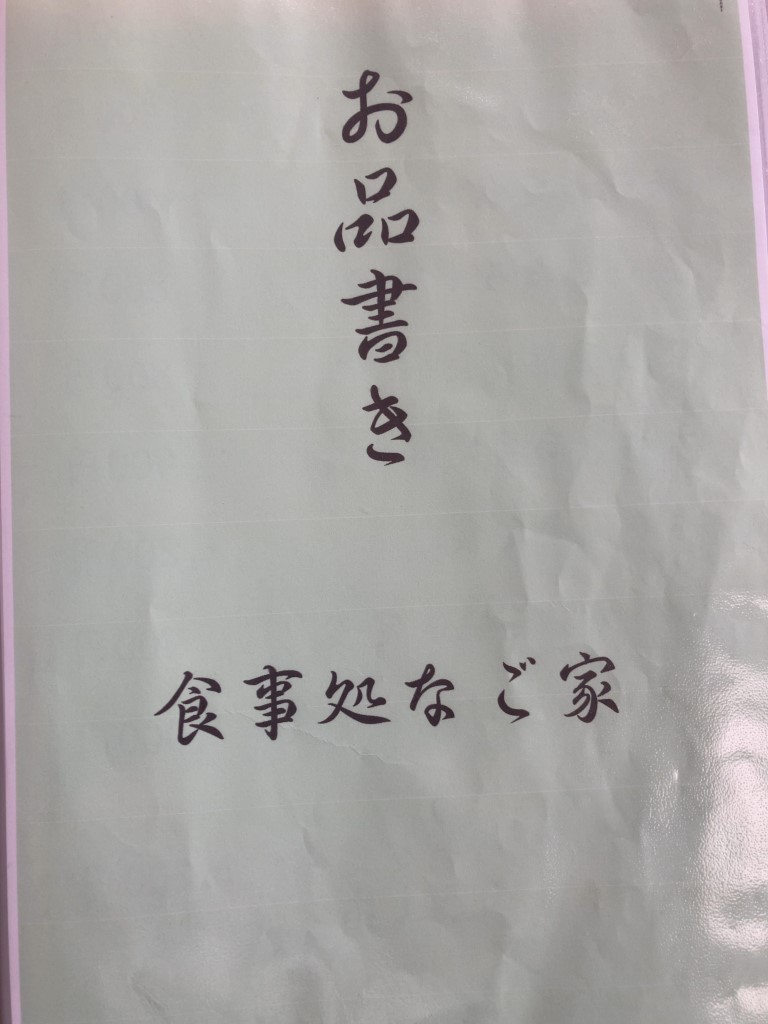 お品書き
食事処なご家